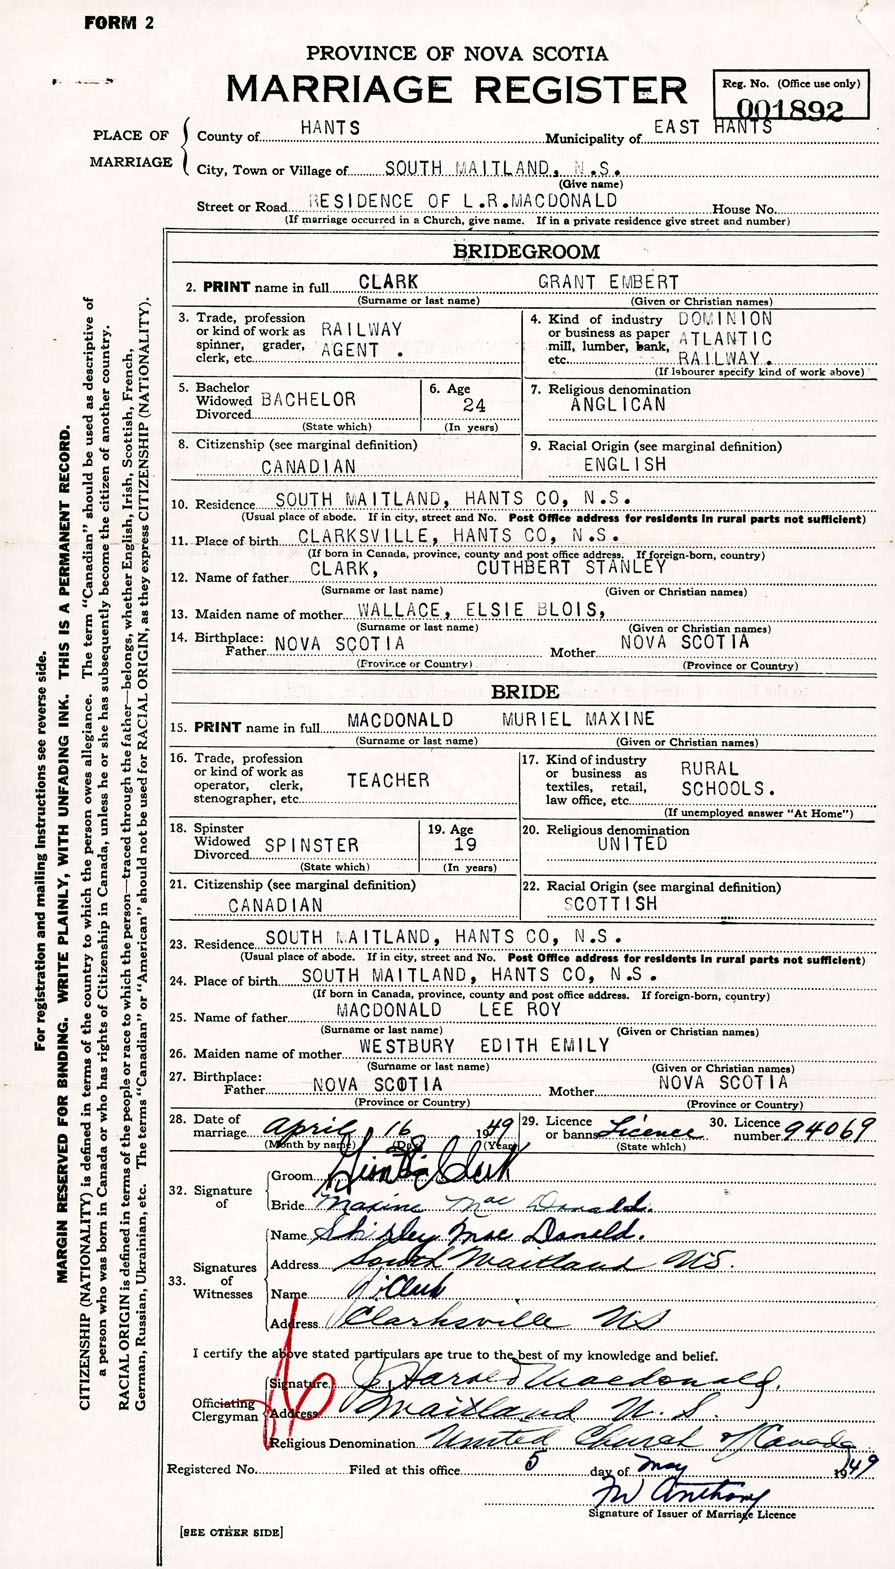 FORM 2
PROVINCE OF NOVA SCOTIA
MARRIAGE REGISTER
Reg. No. (Office use only)
001892
PLACE OF MARRIAGE
County of HANTS Municipality of EAST HANTS
City, Town or Village of SOUTH MAITLAND, N.S.
(Give name)
Street or Road RESIDENCE OF L.R.MACDONALD House No.
(If marriage occurred in a Church, give name. If in a private residence give street and number)
BRIDEGROOM
2. PRINT name in full CLARK GRANT EMBERT
(Surname or last name) (Given or Christian names)
3. Trade, profession or kind of work as spinner, grader, clerk, etc. RAILWAY AGENT .
4. Kind of industry or business as paper mill, lumber, bank, etc. DOMINION ATLANTIC RAILWAY.
(If labourer specify kind of work above)
5. Bachelor Widowed Divorced BACHELOR
(State which)
6. Age 24
(In years)
7. Religious denomination
ANGLICAN
8. Citizenship (see marginal definition)
CANADIAN
9. Racial Origin (see marginal definition)
ENGLISH
10. Residence SOUTH MAITLAND, HANTS CO, N.S.
(Usual place of abode. If in city, street and No. Post Office address for residents in rural parts not sufficient)
11. Place of birth CLARKSVILLE, HANTS CO, N.S.
(If born in Canada, province, county and post office address. If foreign-born, country)
12. Name of father CLARK, CUTHBERT STANLEY
(Surname or last name) (Given or Christian names)
13. Maiden name of mother WALLACE, ELSIE BLOIS,
(Surname or last name) (Given or Christian names)
14. Birthplace: Father NOVA SCOTIA Mother NOVA SCOTIA
(Province or Country) (Province or Country)
BRIDE
15. PRINT name in full MACDONALD MURIEL MAXINE
(Surname or last name) (Given or Christian names)
16. Trade, profession or kind of work as operator, clerk, stenographer, etc. TEACHER
17. Kind of industry or business as textiles, retail, law office, etc. RURAL SCHOOLS.
(If unemployed answer "At Home")
18. Spinster Widowed Divorced SPINSTER
(State which)
19. Age 19
(In years)
20. Religious denomination
UNITED
21. Citizenship (see marginal definition)
CANADIAN
22. Racial Origin (see marginal definition)
SCOTTISH
23. Residence SOUTH MAITLAND, HANTS CO, N.S.
(Usual place of abode. If in city, street and No. Post Office address for residents in rural parts not sufficient)
24. Place of birth SOUTH MAITLAND, HANTS CO, N.S.
(If born in Canada, province, county and post office address. If foreign-born, country)
25. Name of father MACDONALD LEE ROY
(Surname or last name) (Given or Christian names)
26. Maiden name of mother WESTBURY EDITH EMILY
(Surname or last name) (Given or Christian names)
27. Birthplace: Father NOVA SCOTIA Mother NOVA SCOTIA
(Province or Country) (Province or Country)
28. Date of marriage April 16 1949
(Month by name) (Day) (Year)
29. Licence or banns Licence
(State which)
30. Licence number 94069
32. Signature of
Groom Clark
Bride Maxine Mac Donald.
33. Signatures of Witnesses
Name Shirley Mac Donald.
Address South Maitland N.S.
Name Clark
Address Clarksville NS
I certify the above stated particulars are true to the best of my knowledge and belief.
Officiating Clergyman
Signature Harold Macdonald.
Address Maitland N. S.
Religious Denomination United Church of Canada
Registered No. Filed at this office 5 day of May 1949
M Anthony
Signature of Issuer of Marriage Licence
[SEE OTHER SIDE]
For registration and mailing instructions see reverse side.
MARGIN RESERVED FOR BINDING. WRITE PLAINLY, WITH UNFADING INK. THIS IS A PERMANENT RECORD.
CITIZENSHIP (NATIONALITY) is defined in terms of the country to which the person owes allegiance. The term "Canadian" should be used as descriptive of
a person who was born in Canada or who has rights of Citizenship in Canada, unless he or she has subsequently become the citizen of another country.
RACIAL ORIGIN is defined in terms of the people or race to which the person—traced through the father—belongs, whether English, Irish, Scottish, French,
German, Russian, Ukrainian, etc. The terms "Canadian" or "American" should not be used for RACIAL ORIGIN, as they express CITIZENSHIP (NATIONALITY).